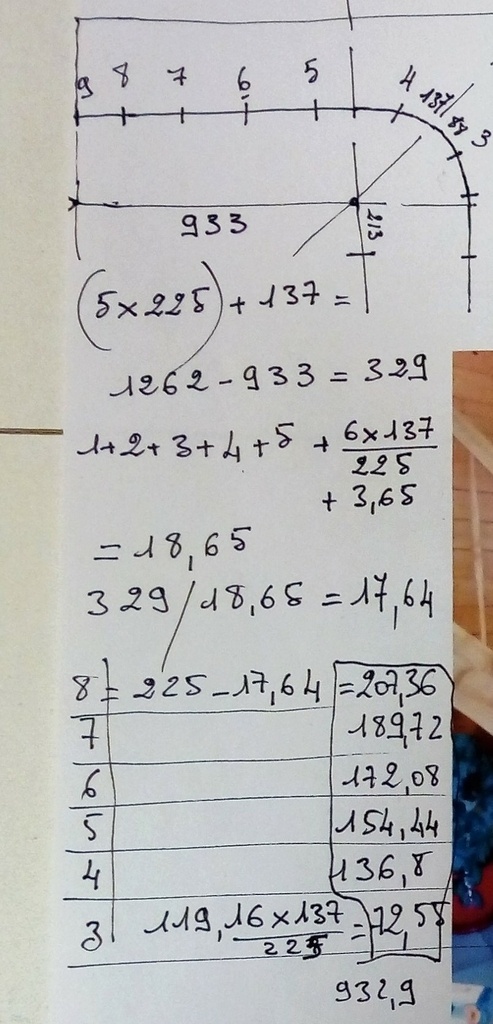 9 8 7 6 5 4 137/88 3
933 213
(5×225) + 137 =
1262 - 933 = 329
1+2+3+4+5 + 6×137/225
+ 3,65
= 18,65
329/18,65 = 17,64
8 = 225 - 17,64 = 207,36
7 189,72
6 172,08
5 154,44
4 136,8
3 119,16×137/225 = 72,55
932,9